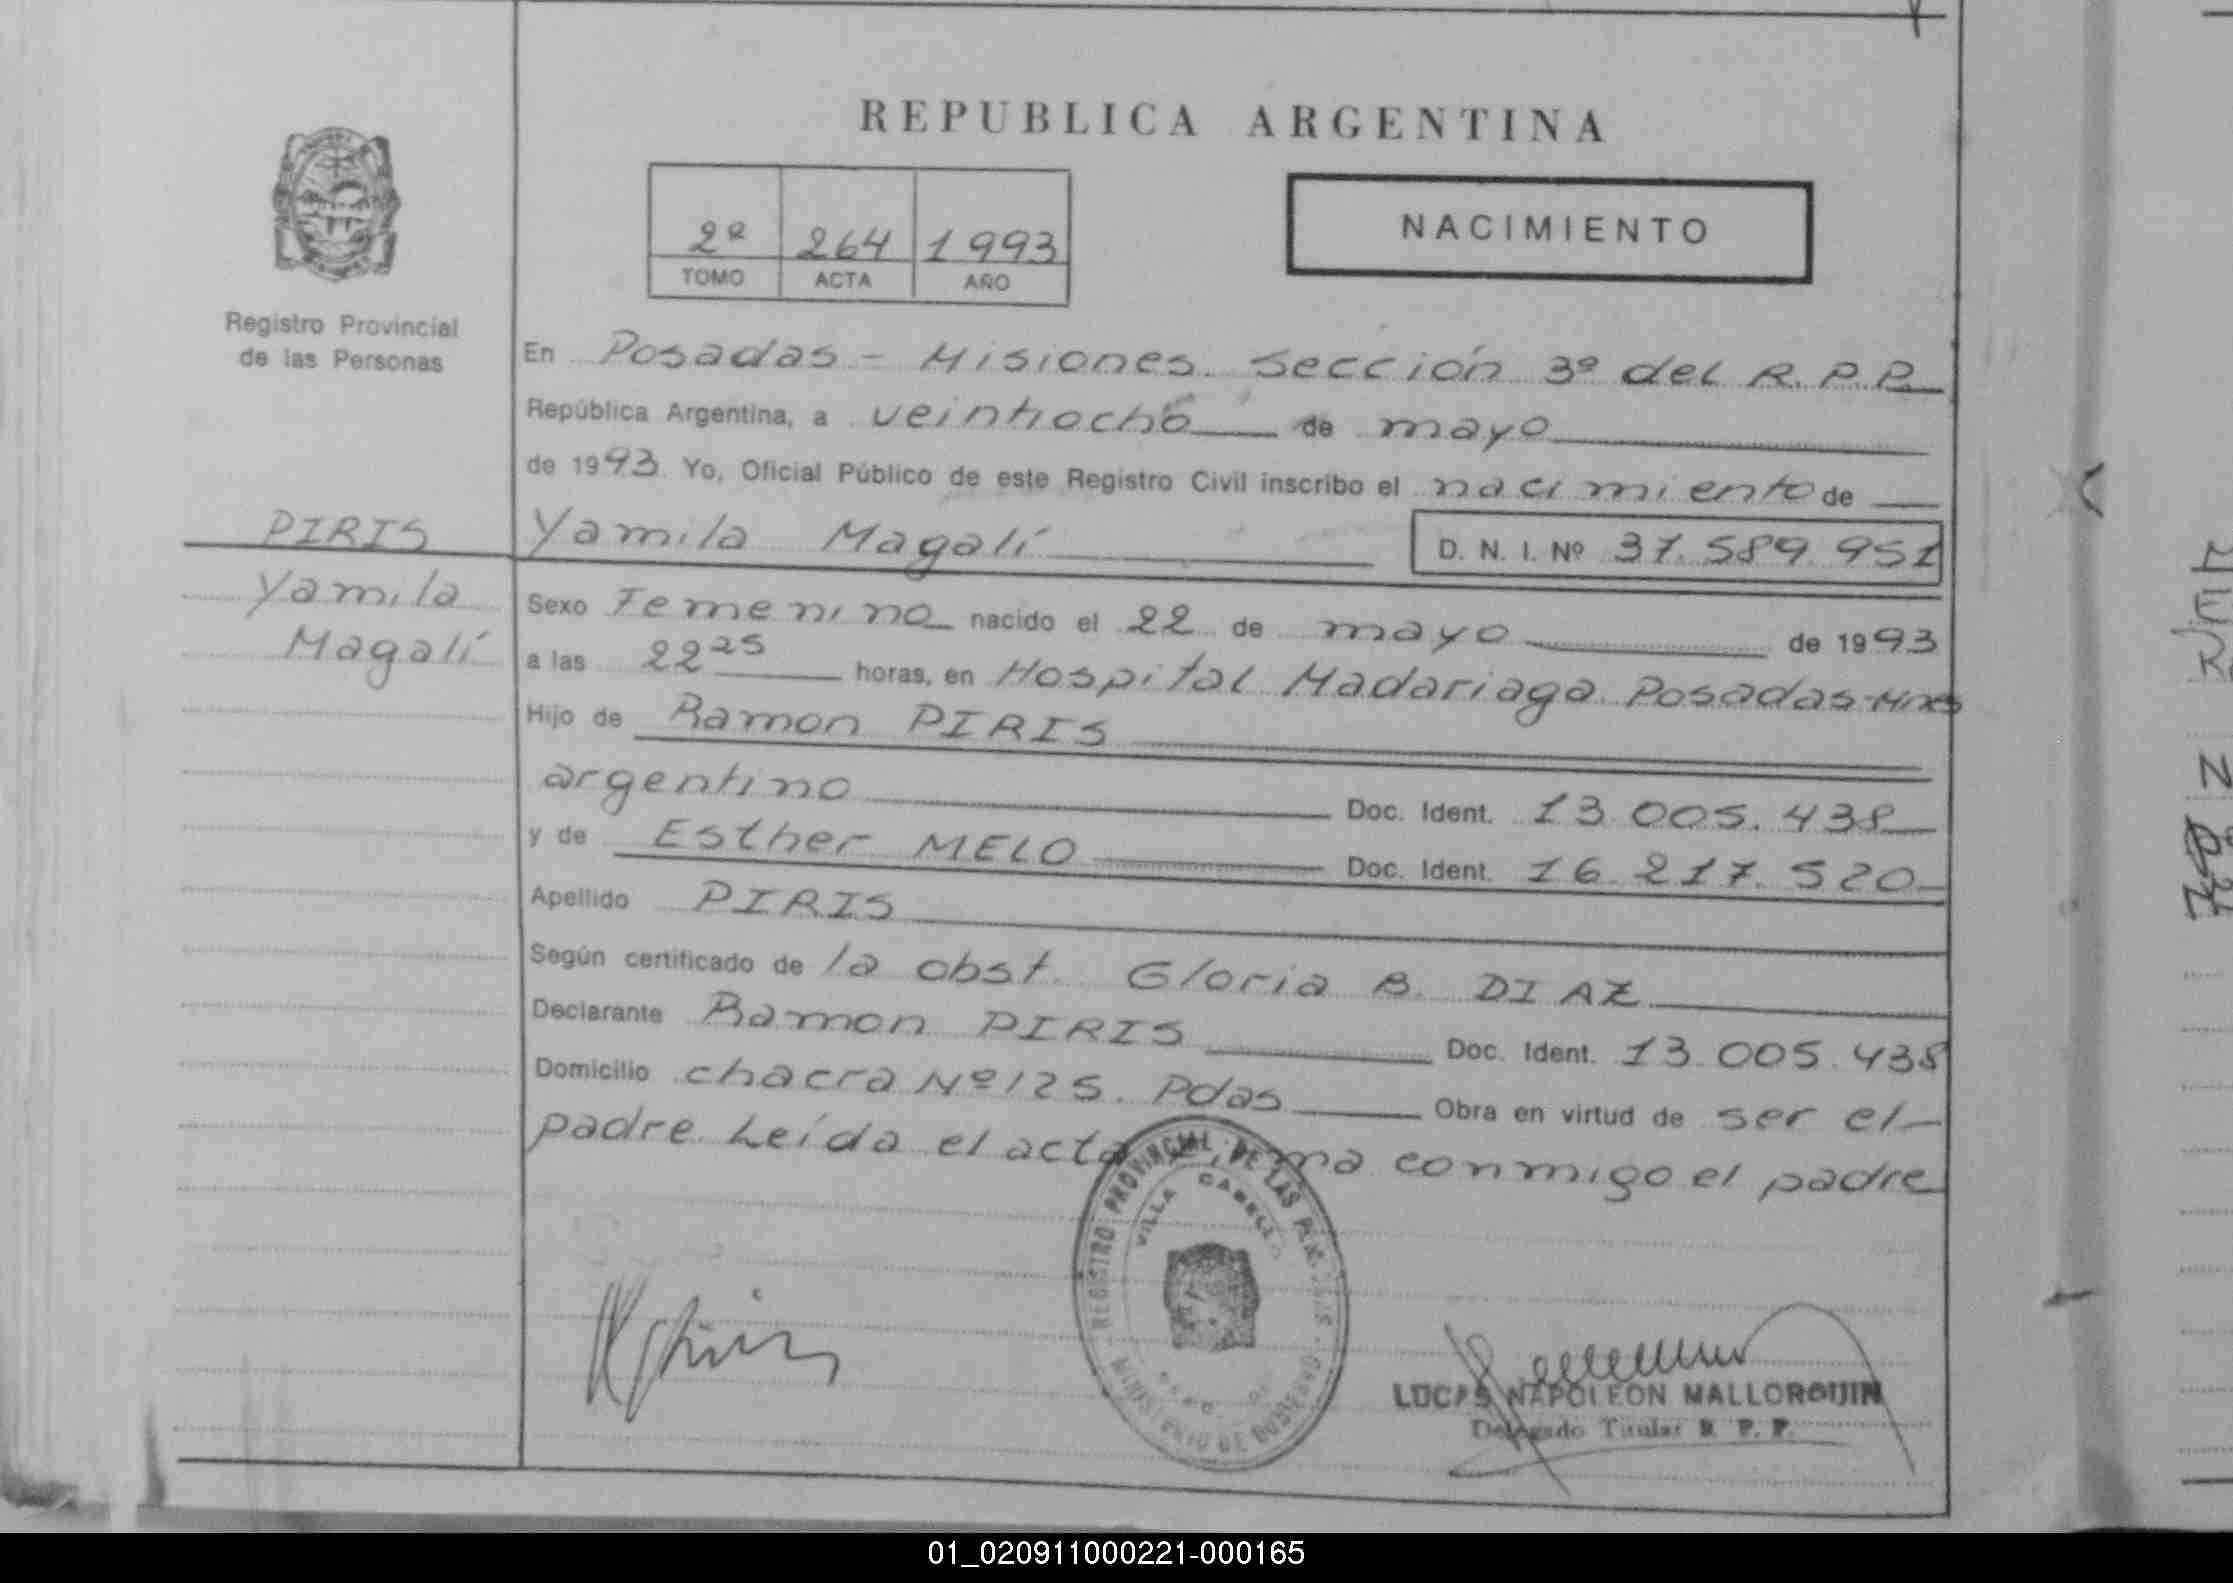 REPUBLICA ARGENTINA
2º 264 1993
TOMO ACTA AÑO
NACIMIENTO
Registro Provincial
de las Personas
En Posadas - Misiones. Sección 3º del R. P. P.
República Argentina, a veintiocho de mayo
de 1993 Yo, Oficial Público de este Registro Civil inscribo el nacimiento de
PIRIS
Yamila Magalí
Yamila Magalí D. N. I. Nº 37.589.951
Sexo Femenino nacido el 22 de mayo de 1993
a las 22 25 horas, en Hospital Madariaga. Posadas-Mnes
Hijo de Ramon PIRIS
argentino Doc. Ident. 13.005.438
y de Esther MELO Doc. Ident. 16.217.520
Apellido PIRIS
Según certificado de la obst. Gloria B. DIAZ
Declarante Ramon PIRIS Doc. Ident. 13.005.438
Domicilio chacra Nº 125. Pdas Obra en virtud de ser el
padre. Leída el acta firma conmigo el padre
REGISTRO PROVINCIAL DE LAS PERSONAS
VILLA CABELLO
MINISTERIO DE GOBIERNO
LUCAS NAPOLEON MALLORQUIN
Delegado Titular R. P. P.
01_020911000221-000165